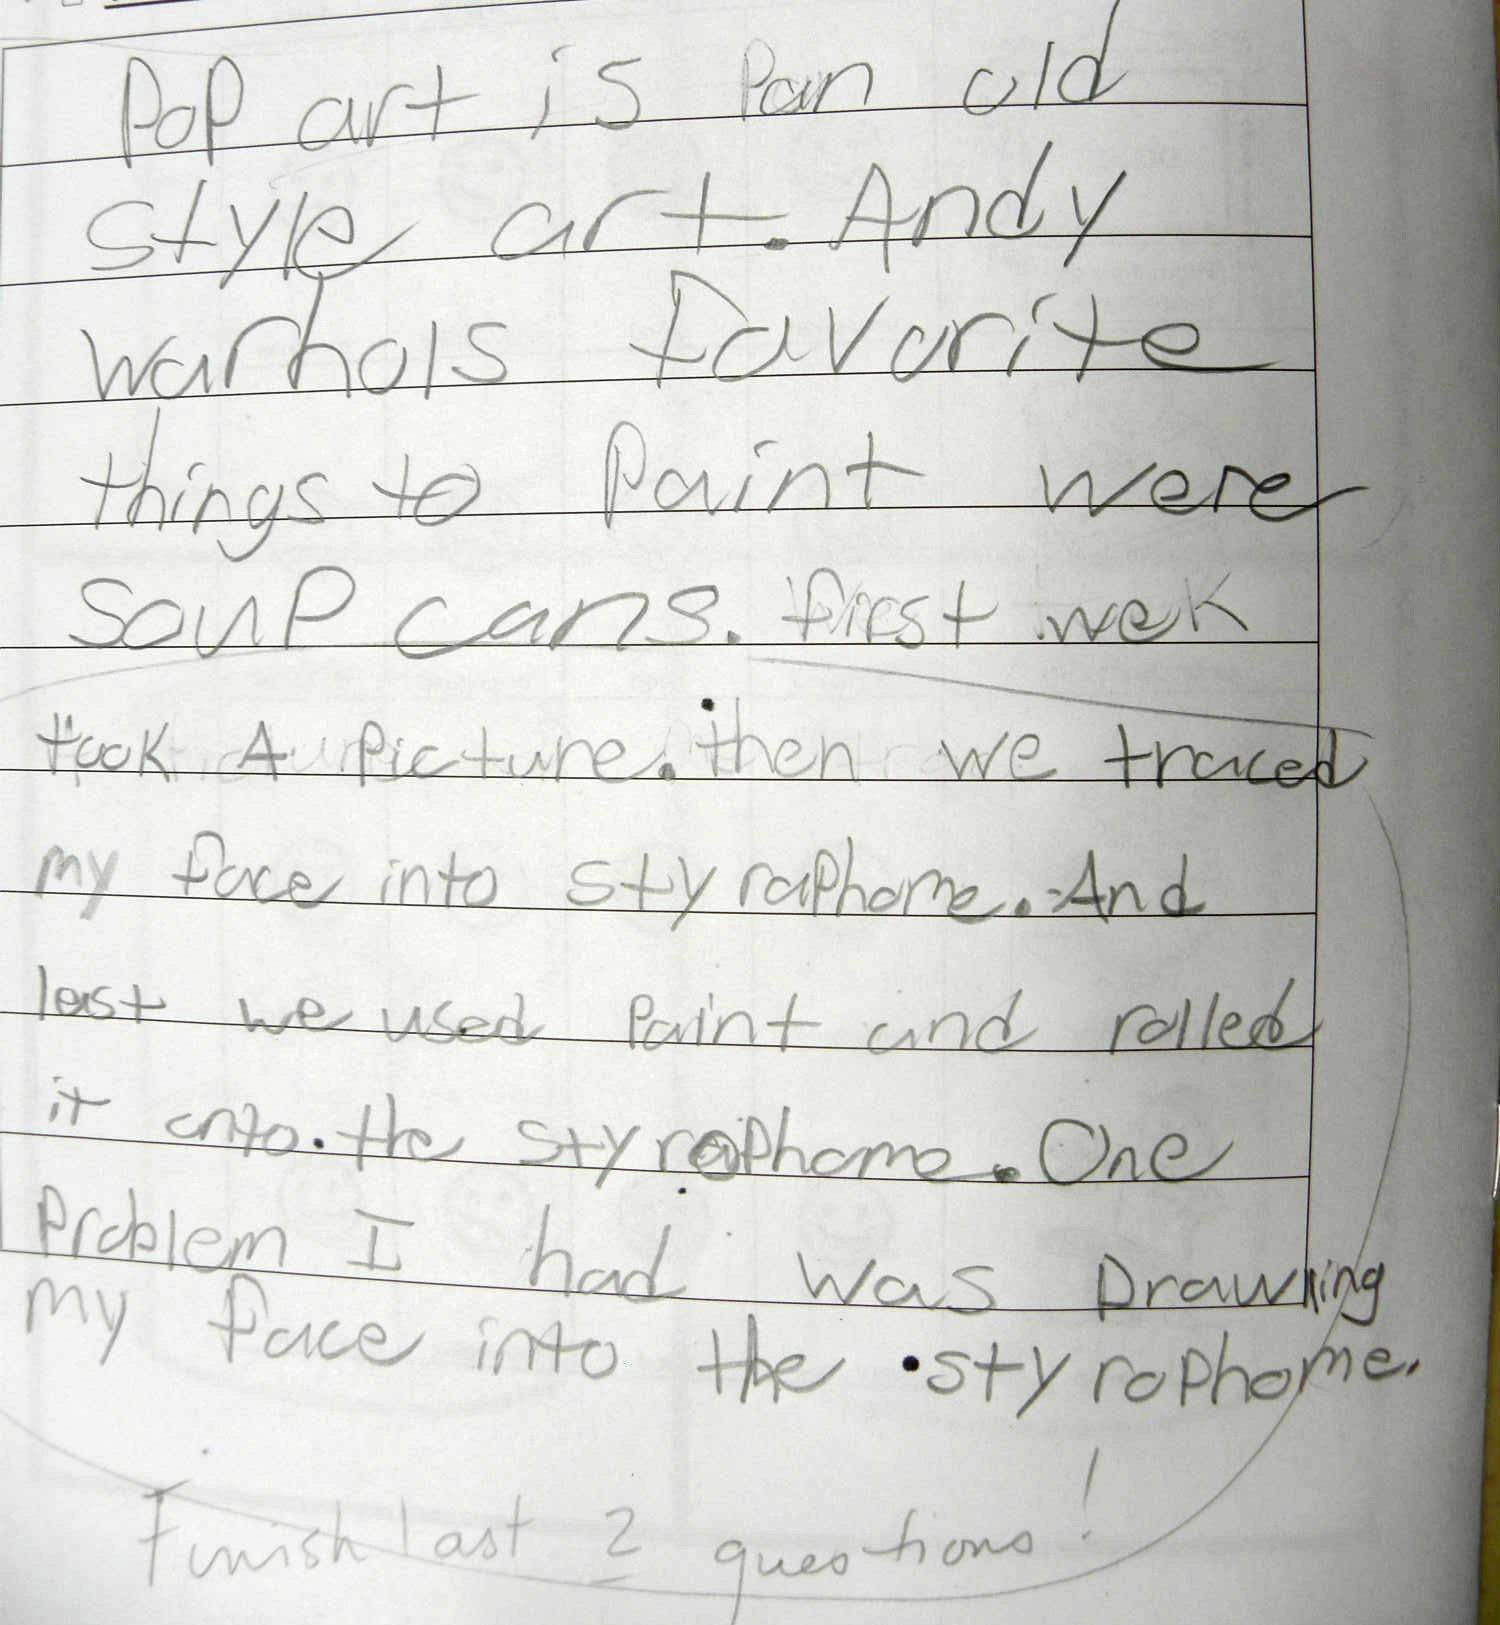 Pop art is Pan old
style art. Andy
warhols favorite
things to Paint were
Soup cans. first wek
took A Picture. then we traced
my face into sty raphome. And
last we used Paint and rolled
it onto. the sty raphome. One
Problem I had was Drawing
my face into the sty rophome.
Finish last 2 questions!